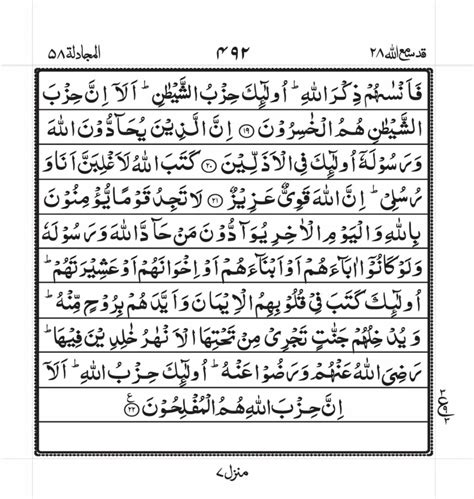 قد سمع الله ٢٨ ۴۹۲ المجادلة ٥٨
فَاَنْسٰىهُمْ ذِكْرَ اللّٰهِ ؕ اُولٰٓئِكَ حِزْبُ الشَّيْطٰنِ ؕ اَلَاۤ اِنَّ حِزْبَ
الشَّيْطٰنِ هُمُ الْخٰسِرُوْنَ ﴿۱۹﴾ اِنَّ الَّذِيْنَ يُحَآدُّوْنَ اللّٰهَ
وَرَسُوْلَهٗۤ اُولٰٓئِكَ فِى الْاَذَلِّيْنَ ﴿۲۰﴾ كَتَبَ اللّٰهُ لَاَغْلِبَنَّ اَنَا وَ
رُسُلِىْ ؕ اِنَّ اللّٰهَ قَوِىٌّ عَزِيْزٌ ﴿۲۱﴾ لَا تَجِدُ قَوْمًا يُّؤْمِنُوْنَ
بِاللّٰهِ وَالْيَوْمِ الْاٰخِرِ يُوَآدُّوْنَ مَنْ حَآدَّ اللّٰهَ وَرَسُوْلَهٗ
وَلَوْ كَانُوْۤا اٰبَآءَهُمْ اَوْ اَبْنَآءَهُمْ اَوْ اِخْوَانَهُمْ اَوْ عَشِيْرَتَهُمْ ؕ
اُولٰٓئِكَ كَتَبَ فِىْ قُلُوْبِهِمُ الْاِيْمَانَ وَاَيَّدَهُمْ بِرُوْحٍ مِّنْهُ ؕ
وَيُدْخِلُهُمْ جَنّٰتٍ تَجْرِىْ مِنْ تَحْتِهَا الْاَنْهٰرُ خٰلِدِيْنَ فِيْهَا ؕ
رَضِىَ اللّٰهُ عَنْهُمْ وَرَضُوْا عَنْهُ ؕ اُولٰٓئِكَ حِزْبُ اللّٰهِ ؕ اَلَاۤ
اِنَّ حِزْبَ اللّٰهِ هُمُ الْمُفْلِحُوْنَ ﴿۲۲﴾ ع
۳
ع ۹
۲
منزل ۷